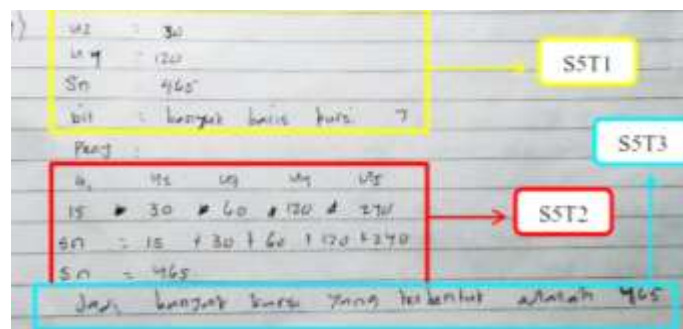 U2 : 30
U4 : 120
Sn 465
Dit : banyak baris kursi ?
S5T1
Peny :
S5T3
U1 U2 U3 U4 U5
15 30 60 120 240
S5T2
Sn = 15 + 30 + 60 + 120 + 240
Sn = 465
Jadi banyak kursi yang terbentuk adalah 465